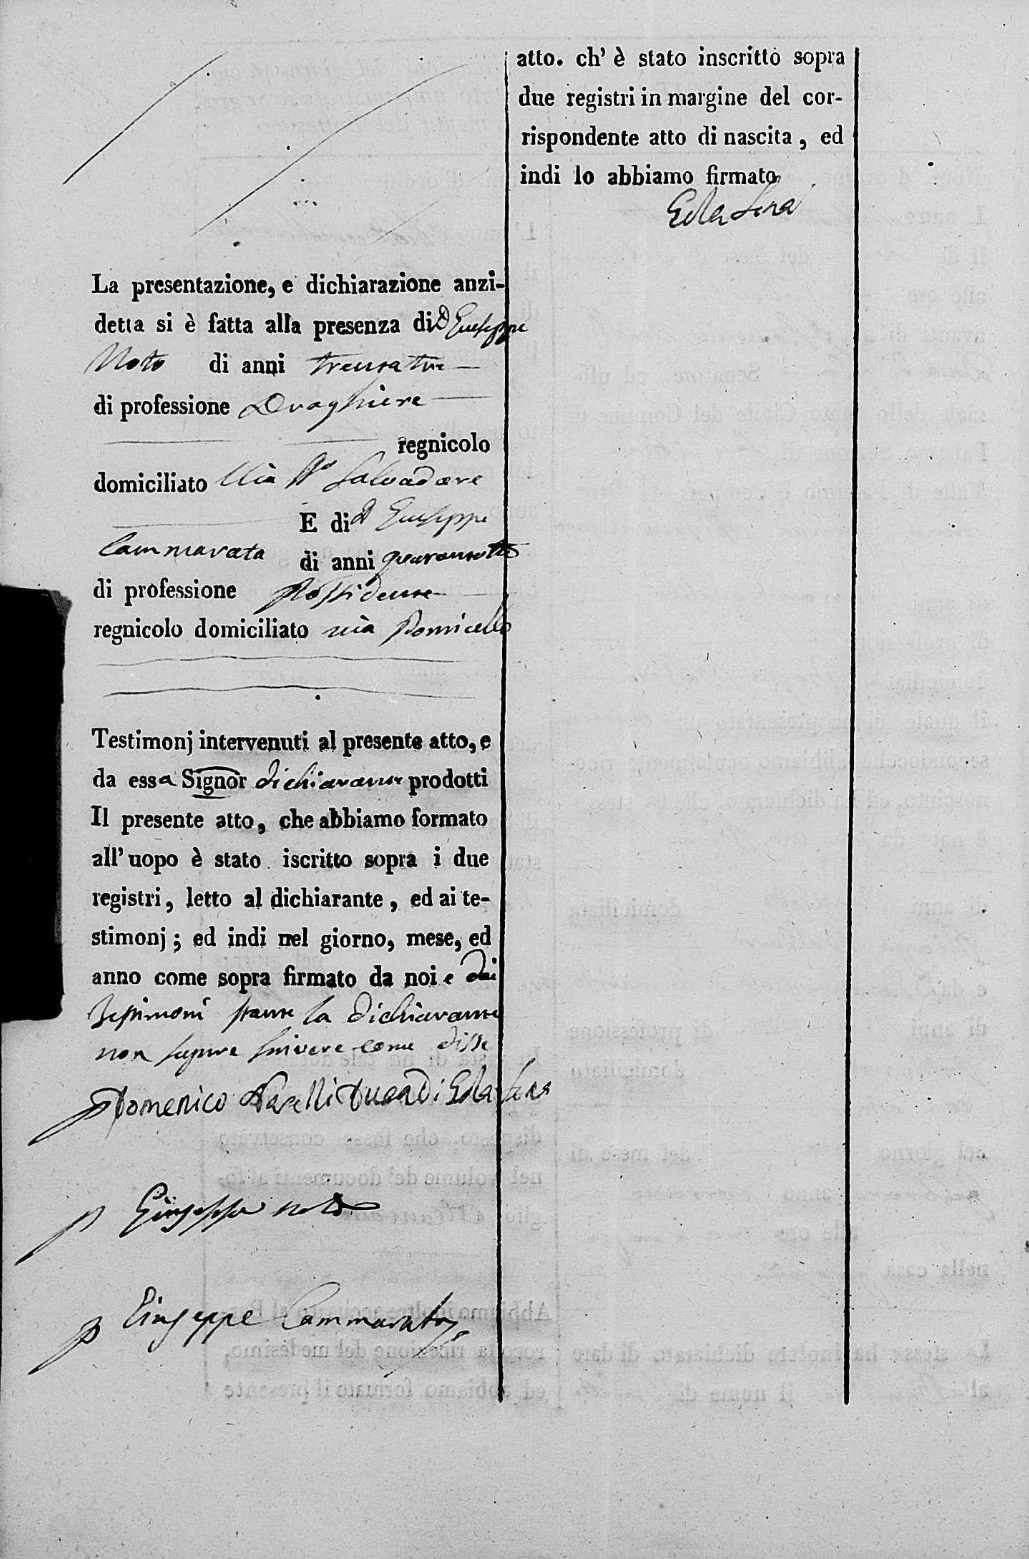 La presentazione, e dichiarazione anzi-
detta si è fatta alla presenza di D Giuseppe
Noto di anni trentatre
di professione Droghiere
regnicolo
domiciliato Via Salvadore
E di D Giuseppe
Cammarata di anni
di professione Possidente
regnicolo domiciliato via Ponticello
Testimonj intervenuti al presente atto, e
da essa Signor dichiarante prodotti
Il presente atto, che abbiamo formato
all'uopo è stato iscritto sopra i due
registri, letto al dichiarante, ed ai te-
stimonj; ed indi nel giorno, mese, ed
anno come sopra firmato da noi e dai
Testimoni stante la dichiarante
non sapere scrivere come disse
Domenico Duca Di
Giuseppe noto
Giuseppe Cammarata
atto. ch' è stato inscritto sopra
due registri in margine del cor-
rispondente atto di nascita, ed
indi lo abbiamo firmato